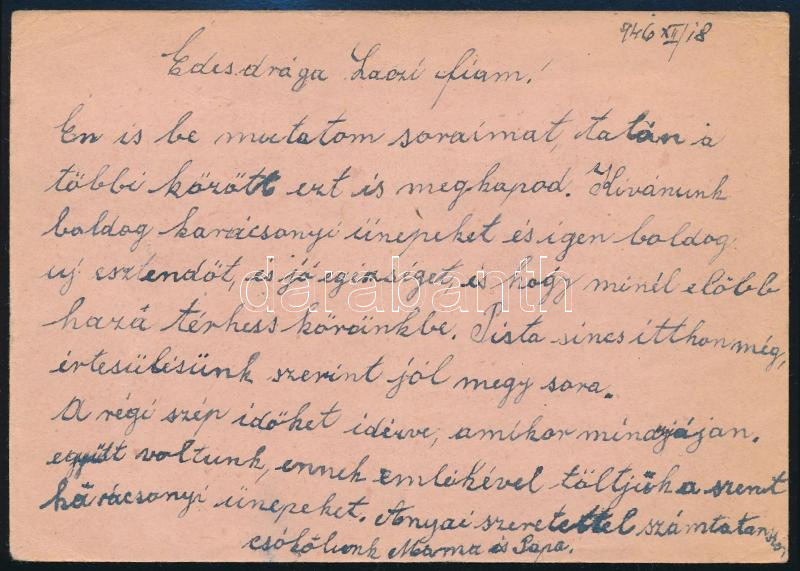 946 XII/18
Edes drága Laczi fiam!
En is be mutatom soraimat, talán a
többi között ezt is megkapod. Kivánunk
boldog karácsonyi ünepeket és igen boldog
uj esztendöt, es jó egéngiséget, is hogy minél elöbb
haza térhess köreinkbe. Pista sincs itthon még,
értesülésünk szerint jól megy sora.
A régi szép idöket idézve, amikor mindjájan.
együtt voltunk, ennek emlékével töltjük a szent
karácsonyi ünepeket. Anyai szeretettel számtatanszor
csókólunk Mama és Papa.
darabanth